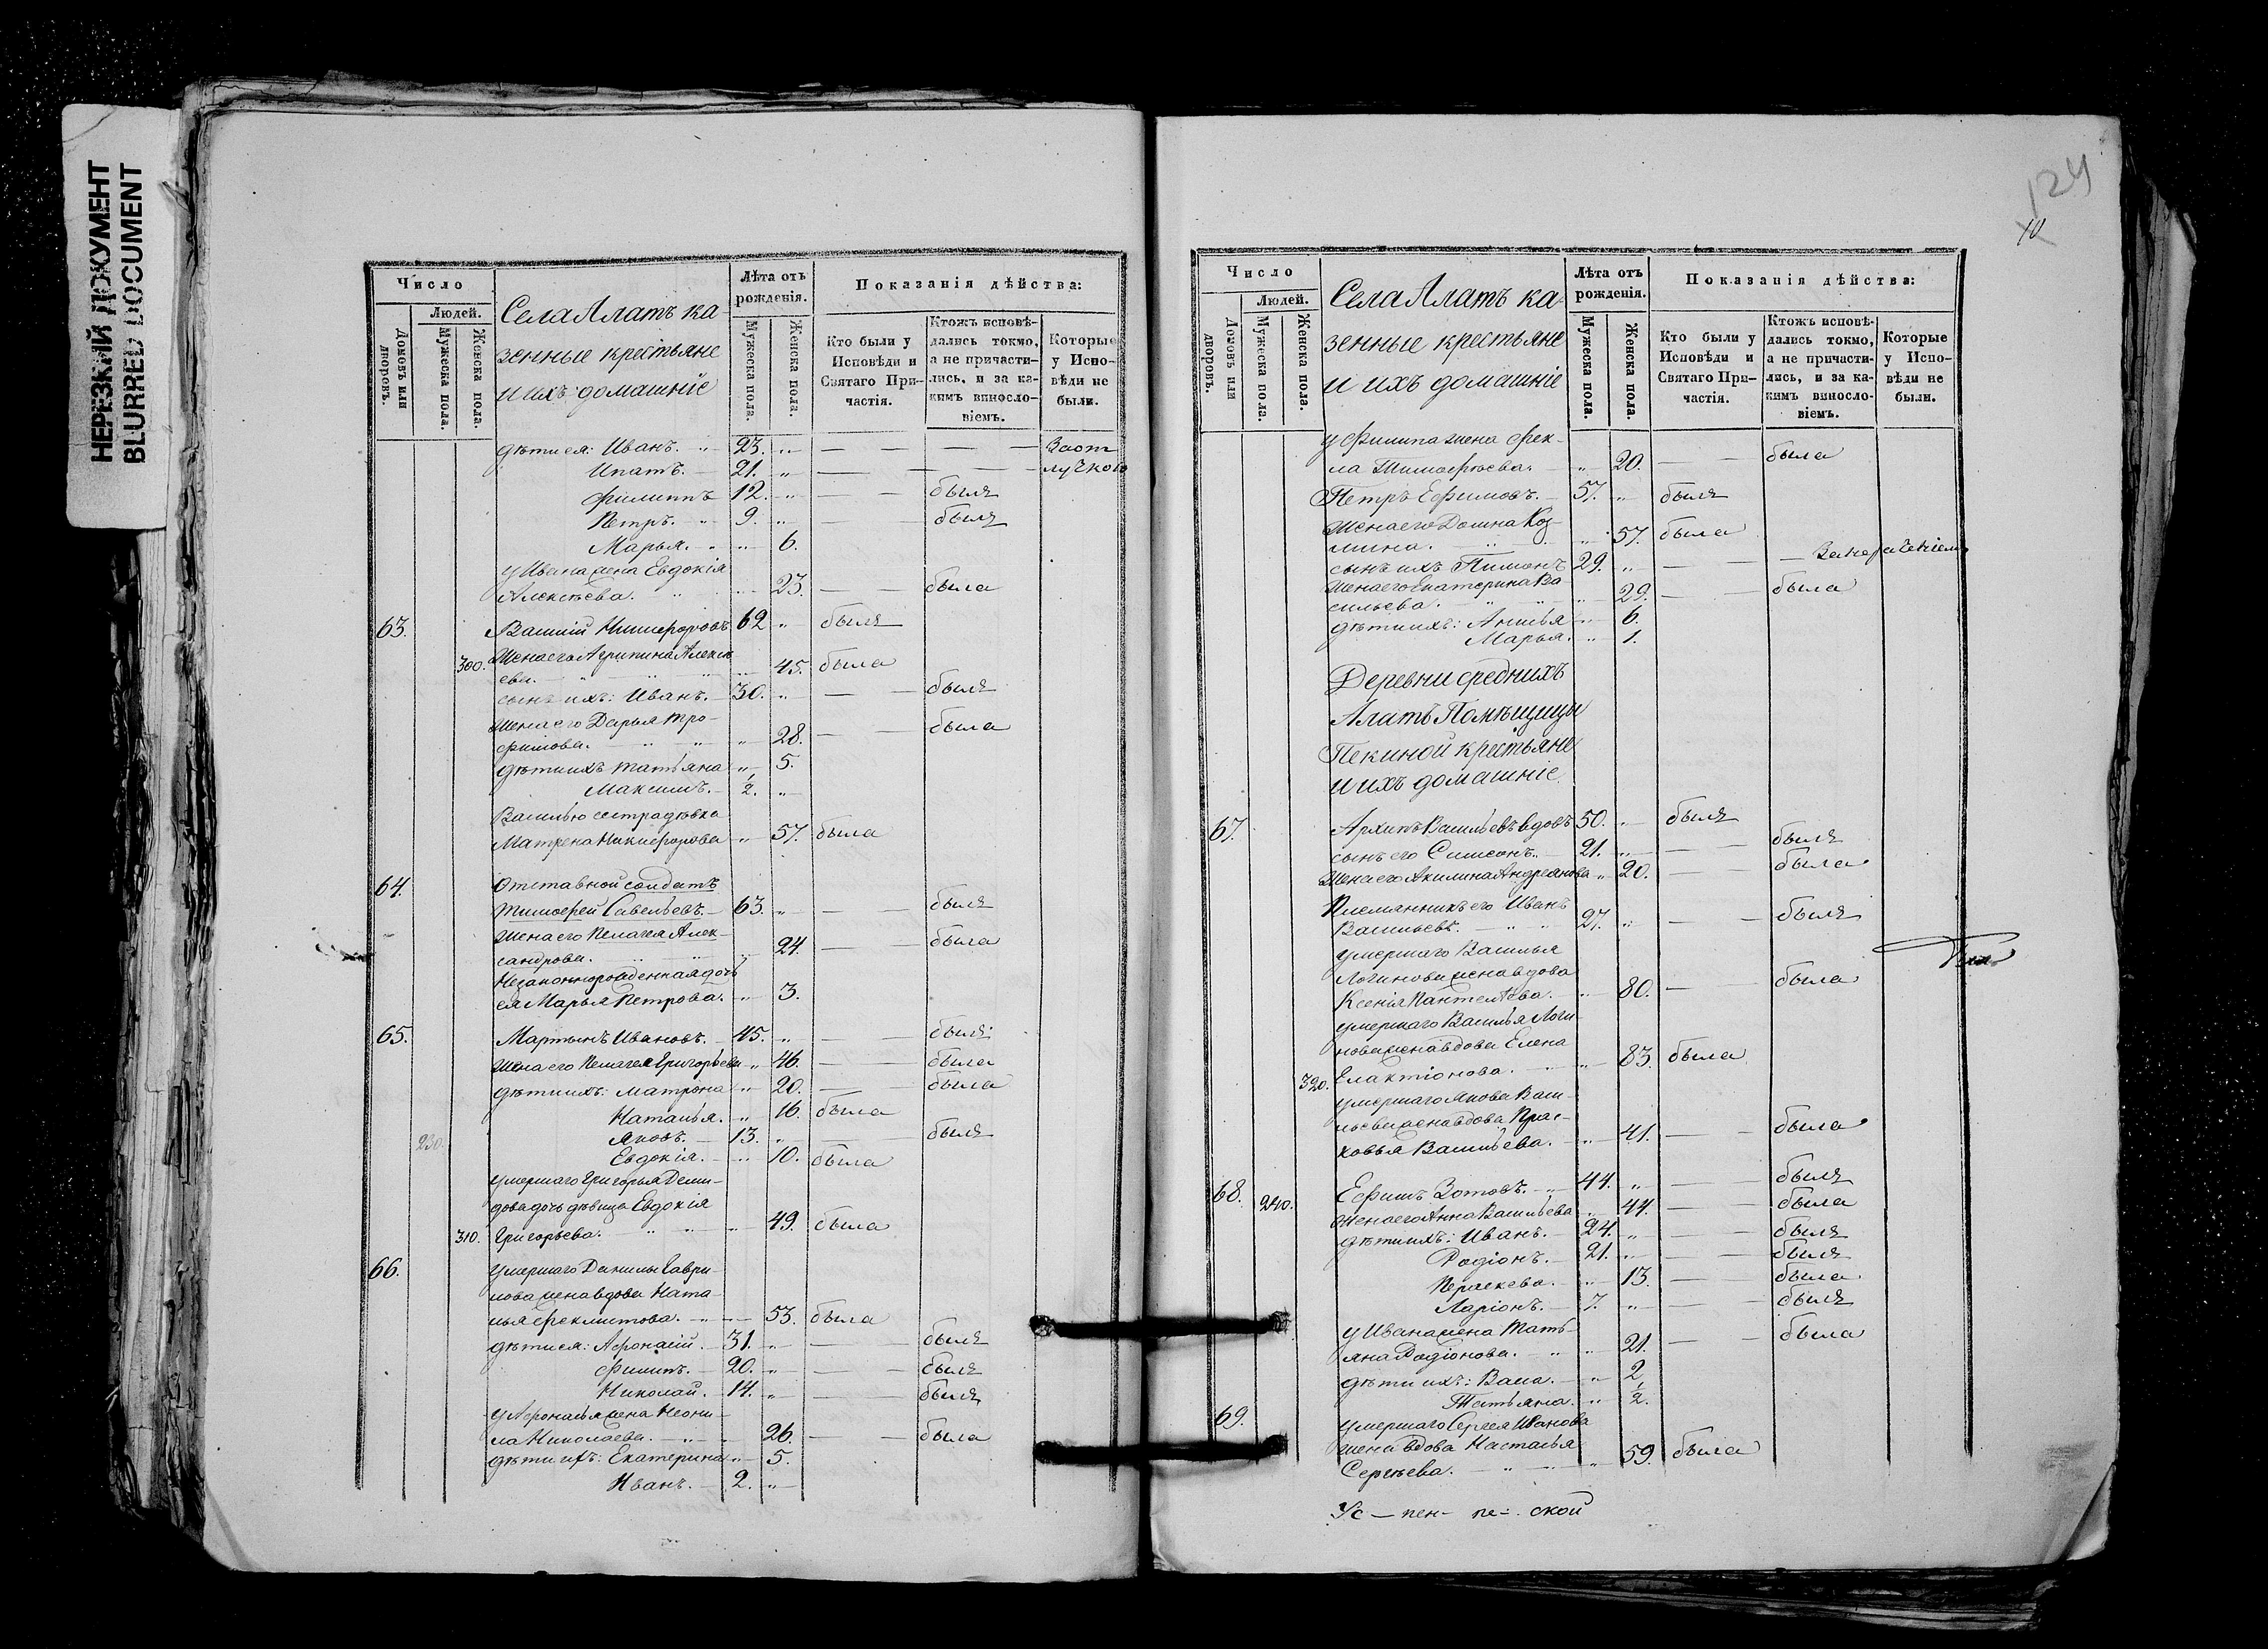 НЕРЕЗКИЙ ДОКУМЕНТ
BLURRED DOCUMENT
Число
Людей.
Домовъ или дворовъ.
Мужеска пола.
Женска пола.
Села Алатъ ка-
зенные крестьяне
и ихъ домашніе
Лѣта отъ рожденія.
Мужеска пола.
Женска пола.
Показанія дѣйства:
Кто были у Исповѣди и Святаго При-частія.
Ктожъ исповѣ-дались токмо, а не причасти-лись, и за ка-кимъ винослo-віемъ.
Которые у Испо-вѣди не были.
дѣти ея: Иванъ. 23. „ — — — За от
Ипатъ. 21. „ — — — лучкою
Филиппъ 12. „ — — былъ
Петръ. 9. „ — — былъ
Марья. „ 6.
у Ивана жена Евдокія
Алексѣева. „ 23. — — была
63. Василій Никифоровъ 62 „ былъ
300. Жена его Агрипина Алексѣ
ева. „ 45. была
сынъ ихъ: Иванъ. 30. „ — — былъ
Жена его Дарья Тро-
фимова. „ 28. — — была
дѣти ихъ Татьяна „ 5.
Максимъ. ½. „
Василью сестра дѣвка
Матрена Никифорова „ 57. была
64. Отставной солдатъ
Тимофей Савельевъ. 63. „ — — былъ
Жена его Пелагея Алек-
сандрова. „ 24. — — была
Незаконнорожденная дочь
ея Марья Петрова. „ 3.
65. Мартынъ Ивановъ. 45. „ — — былъ
Жена его Пелагея Григорьева „ 46. — — была
дѣти ихъ: Матрона „ 20. — — была
Наталья. „ 16. была
230. Яковъ. 13. „ — — былъ
Евдокія. „ 10. была
умершаго Григорья Деми-
дова дочь дѣвица Евдокія
310. Григорьева. „ 49. была
66. умершаго Данилы Гаври-
лова жена вдова Ната-
лья Феклистова. „ 53. была
дѣти ея: Афонасій. 31. „ — — былъ
Филипъ. 20. „ — — былъ
Николай. 14. „ — — былъ
у Афонасья жена Неони-
ла Николаева. „ 26. — — была
дѣти ихъ: Екатерина „ 5.
Иванъ. 2. „
124
10
Число
Людей.
Домовъ или дворовъ.
Мужеска пола.
Женска пола.
Села Алатъ ка-
зенные крестьяне
и ихъ домашніе
Лѣта отъ рожденія.
Мужеска пола.
Женска пола.
Показанія дѣйства:
Кто были у Исповѣди и Святаго При-частія.
Ктожъ исповѣ-дались токмо, а не причасти-лись, и за ка-кимъ винослo-віемъ.
Которые у Испо-вѣди не были.
у Филипа жена Фек-
ла Тимофѣева. „ 20. — — была
Петръ Ефимовъ. 57. „ былъ
Жена его Домна Коз-
мина. „ 57. была
сынъ ихъ Пимонъ 29. „ — — За нерачѣніемъ
Жена его Екатерина Ва-
сильева. „ 29. — — была
дѣти ихъ: Анисья „ 6.
Марья. „ 1.
Деревни среднихъ
Алатъ Помѣщицы
Пекиной крестьяне
и ихъ домашніе
67. Архипъ Васильевъ вдовъ 50. „ былъ
сынъ его Симеонъ. 21. „ — — былъ
Жена его Акилина Андреянова „ 20. — — была
Племянникъ его Иванъ
Васильевъ. 27. „ — — былъ
умершаго Василья
Логинова жена вдова
Ксенія Пантелѣева. „ 80. — — была
умершаго Василья Логи-
нова жена вдова Елена
320. Галактіонова. „ 83. была
умершаго Якова Васи-
льева жена вдова Прас-
ковья Васильева. „ 41. — — была
68. 240. Ефимъ Зотовъ. 44. „ — — былъ
Жена его Анна Васильева „ 44. — — была
дѣти ихъ: Иванъ. 24. „ — — былъ
Родіонъ. 21. „ — — былъ
Пераскева. „ 13. — — была
Ларіонъ. 7. „ — — былъ
у Ивана жена Тать-
яна Родіонова. „ 21. — — была
дѣти ихъ: Васа. „ 2
Татьяна. „ ½.
69. умершаго Сергея Иванова
жена вдова Настасья
Сергѣева. „ 59. была
Ус — пен — ской